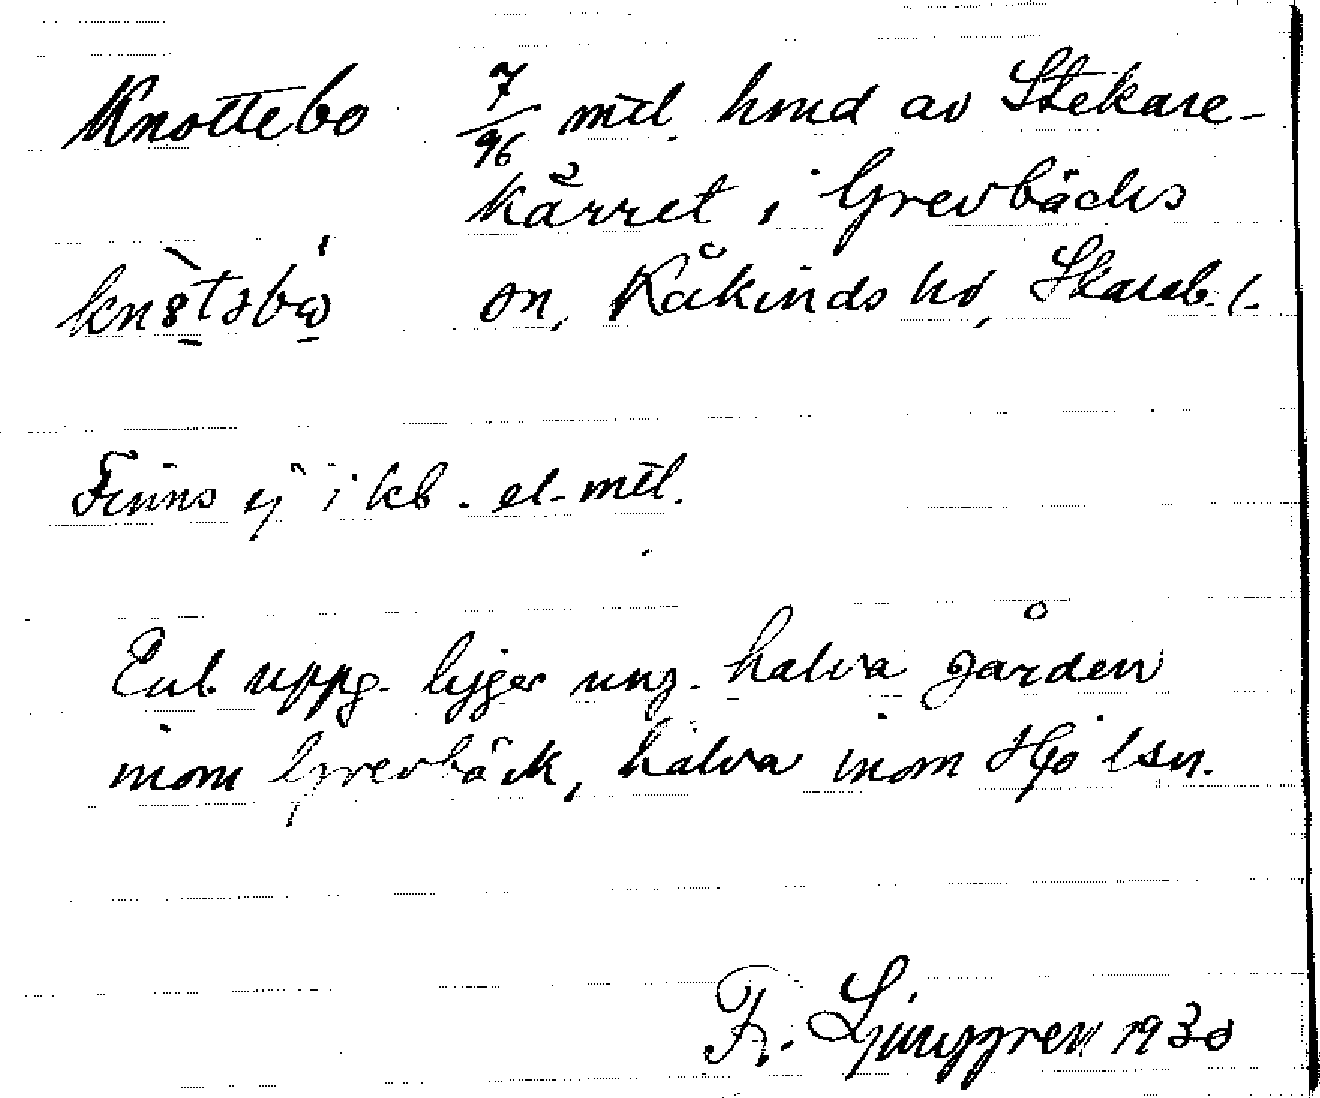 Knottebo 7/96 mtl. hmd av Stekare-
kärret i Grevbäcks
sn, Kåkinds hd, Skarab. l.
Finns ej i kb. el. mtl.
Enl. uppg. ligger ung. halva gården
inom Grevbäck, halva inom Hjo lsn.
Fr. Ljunggren 1930